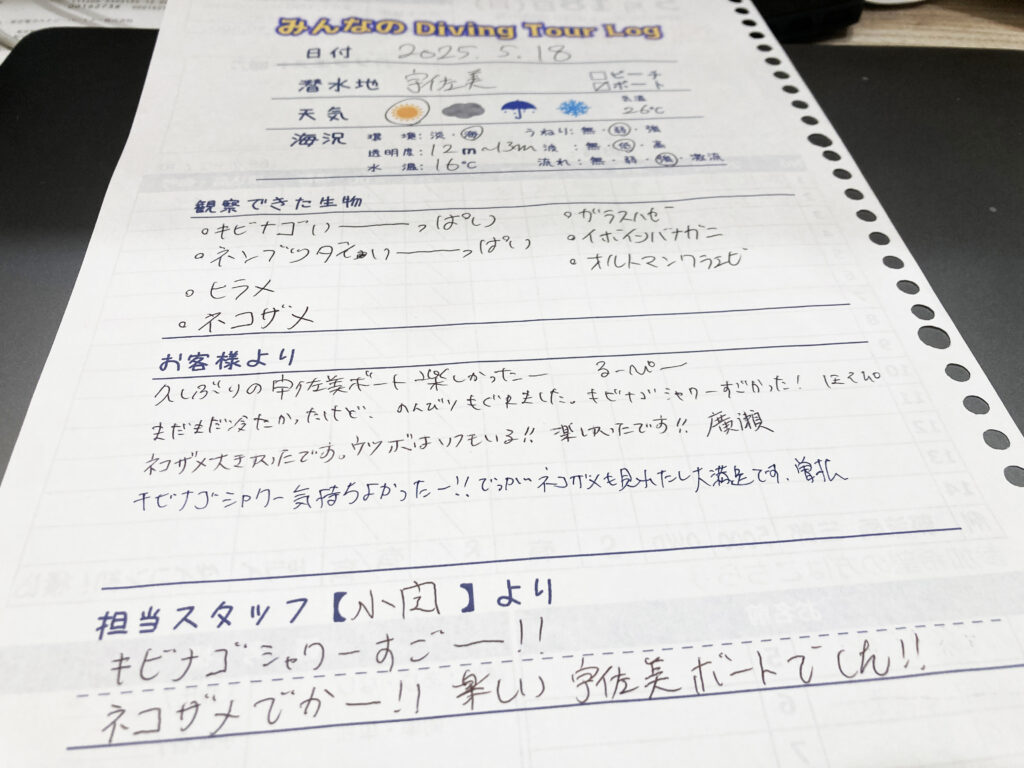 みんなの Diving Tour Log
日付 2025. 5. 18
潜水地 宇佐美 □ビーチ ☑ボート
天気 気温 26℃
海況 環境:淡・海 うねり:無・弱・強
透明度:12m~13m 波:無・低・高
水温:16℃ 流れ:無・弱・強・激流
観察できた生物
・キビナゴい――っぱい
・ネンブツダイい――っぱい
・ヒラメ
・ネコザメ
・ガラスハゼ
・イボイソバナガニ
・オルトマンワラエビ
お客様より
久しぶりの宇佐美ボート楽しかったー るーぺー
まだまだ冷たかったけど、のんびりもぐれました。キビナゴシャワーすごかった!
ネコザメ大きかったです。ウツボはいつもいる!! 楽しかったです!! 廣瀬
キビナゴシャワー気持ちよかったー!! でっかいネコザメも見れたし大満足です。
担当スタッフ【小田】より
キビナゴシャワーすごーー!!
ネコザメでかー!! 楽しい宇佐美ボートでした!!